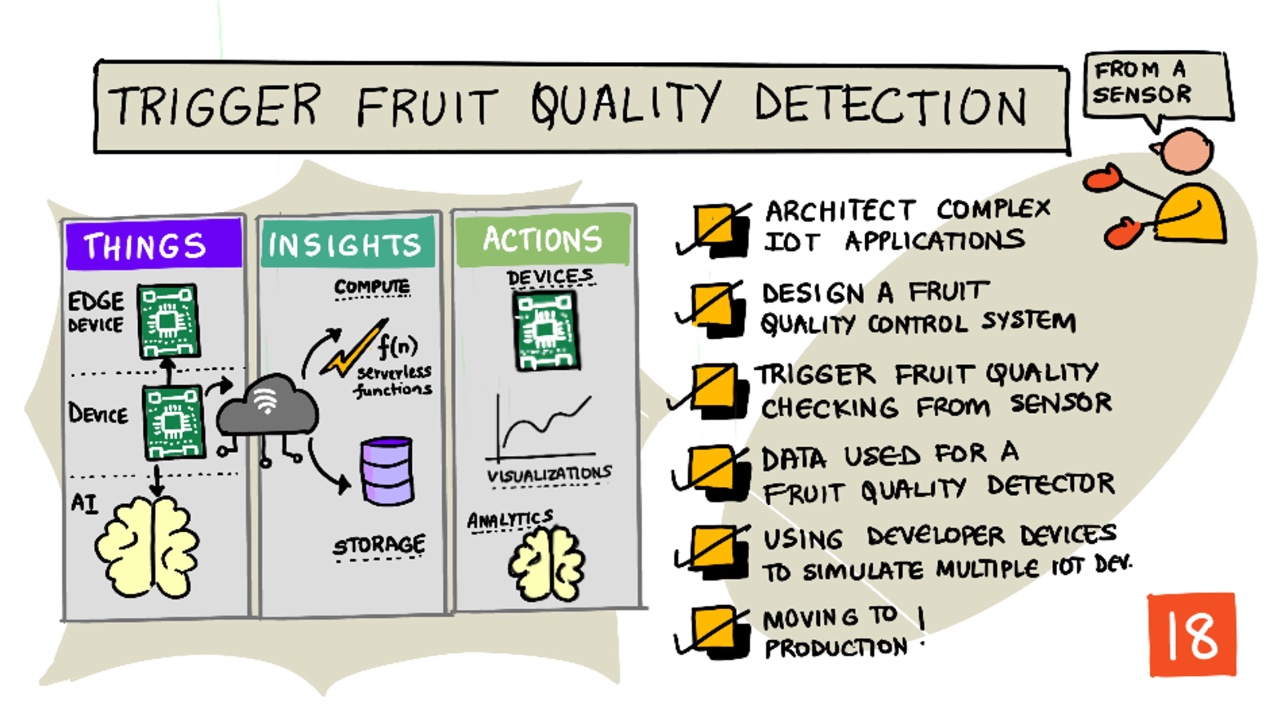 TRIGGER FRUIT QUALITY DETECTION
FROM A
SENSOR
THINGS
EDGE
DEVICE
DEVICE
AI
INSIGHTS
COMPUTE
f(n)
serverless
functions
STORAGE
ACTIONS
DEVICES
VISUALIZATIONS
ANALYTICS
ARCHITECT COMPLEX
IOT APPLICATIONS
DESIGN A FRUIT
QUALITY CONTROL SYSTEM
TRIGGER FRUIT QUALITY
CHECKING FROM SENSOR
DATA USED FOR A
FRUIT QUALITY DETECTOR
USING DEVELOPER DEVICES
TO SIMULATE MULTIPLE IOT DEV.
MOVING TO
PRODUCTION !
18